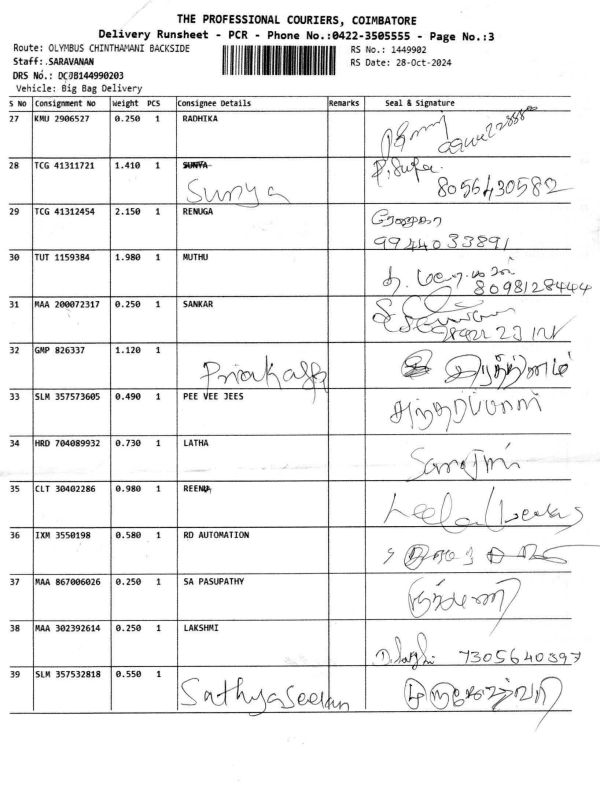 THE PROFESSIONAL COURIERS, COIMBATORE
Delivery Runsheet - PCR - Phone No.:0422-3505555 - Page No.:3
Route: OLYMBUS CHINTHAMANI BACKSIDE RS No.: 1449902
Staff:.SARAVANAN RS Date: 28-Oct-2024
DRS No.: DCJB144990203
Vehicle: Big Bag Delivery
S No Consignment No Weight PCS Consignee Details Remarks Seal & Signature
27 KMU 2906527 0.250 1 RADHIKA
28 TCG 41311721 1.410 1 SUNYA
Sunya 8056430582
29 TCG 41312454 2.150 1 RENUGA ரேணுகா
9944033891
30 TUT 1159384 1.980 1 MUTHU
8098128444
31 MAA 200072317 0.250 1 SANKAR
32 GMP 826337 1.120 1
33 SLM 357573605 0.490 1 PEE VEE JEES
34 HRD 704089932 0.730 1 LATHA
35 CLT 30402286 0.980 1 REENU
Leela
36 IXM 3550198 0.580 1 RD AUTOMATION
37 MAA 867006026 0.250 1 SA PASUPATHY
38 MAA 302392614 0.250 1 LAKSHMI
7305640397
39 SLM 357532818 0.550 1